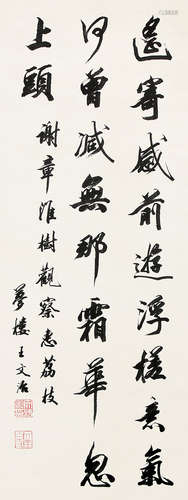 遙寄感前遊浮槎意氣
何曾減無那霜華忽
上頭
謝章淮樹觀察惠荔枝
夢樓王文治